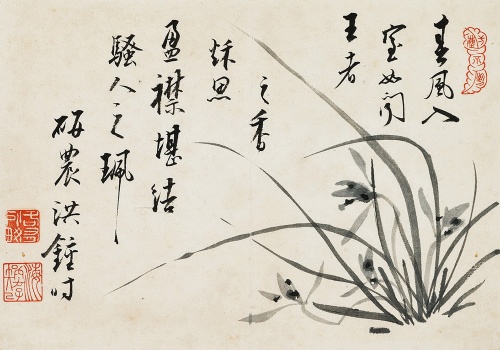 春風入
室如聞
王者
之香
秋思
盈襟堪結
騷人之珮
研農洪鐘時